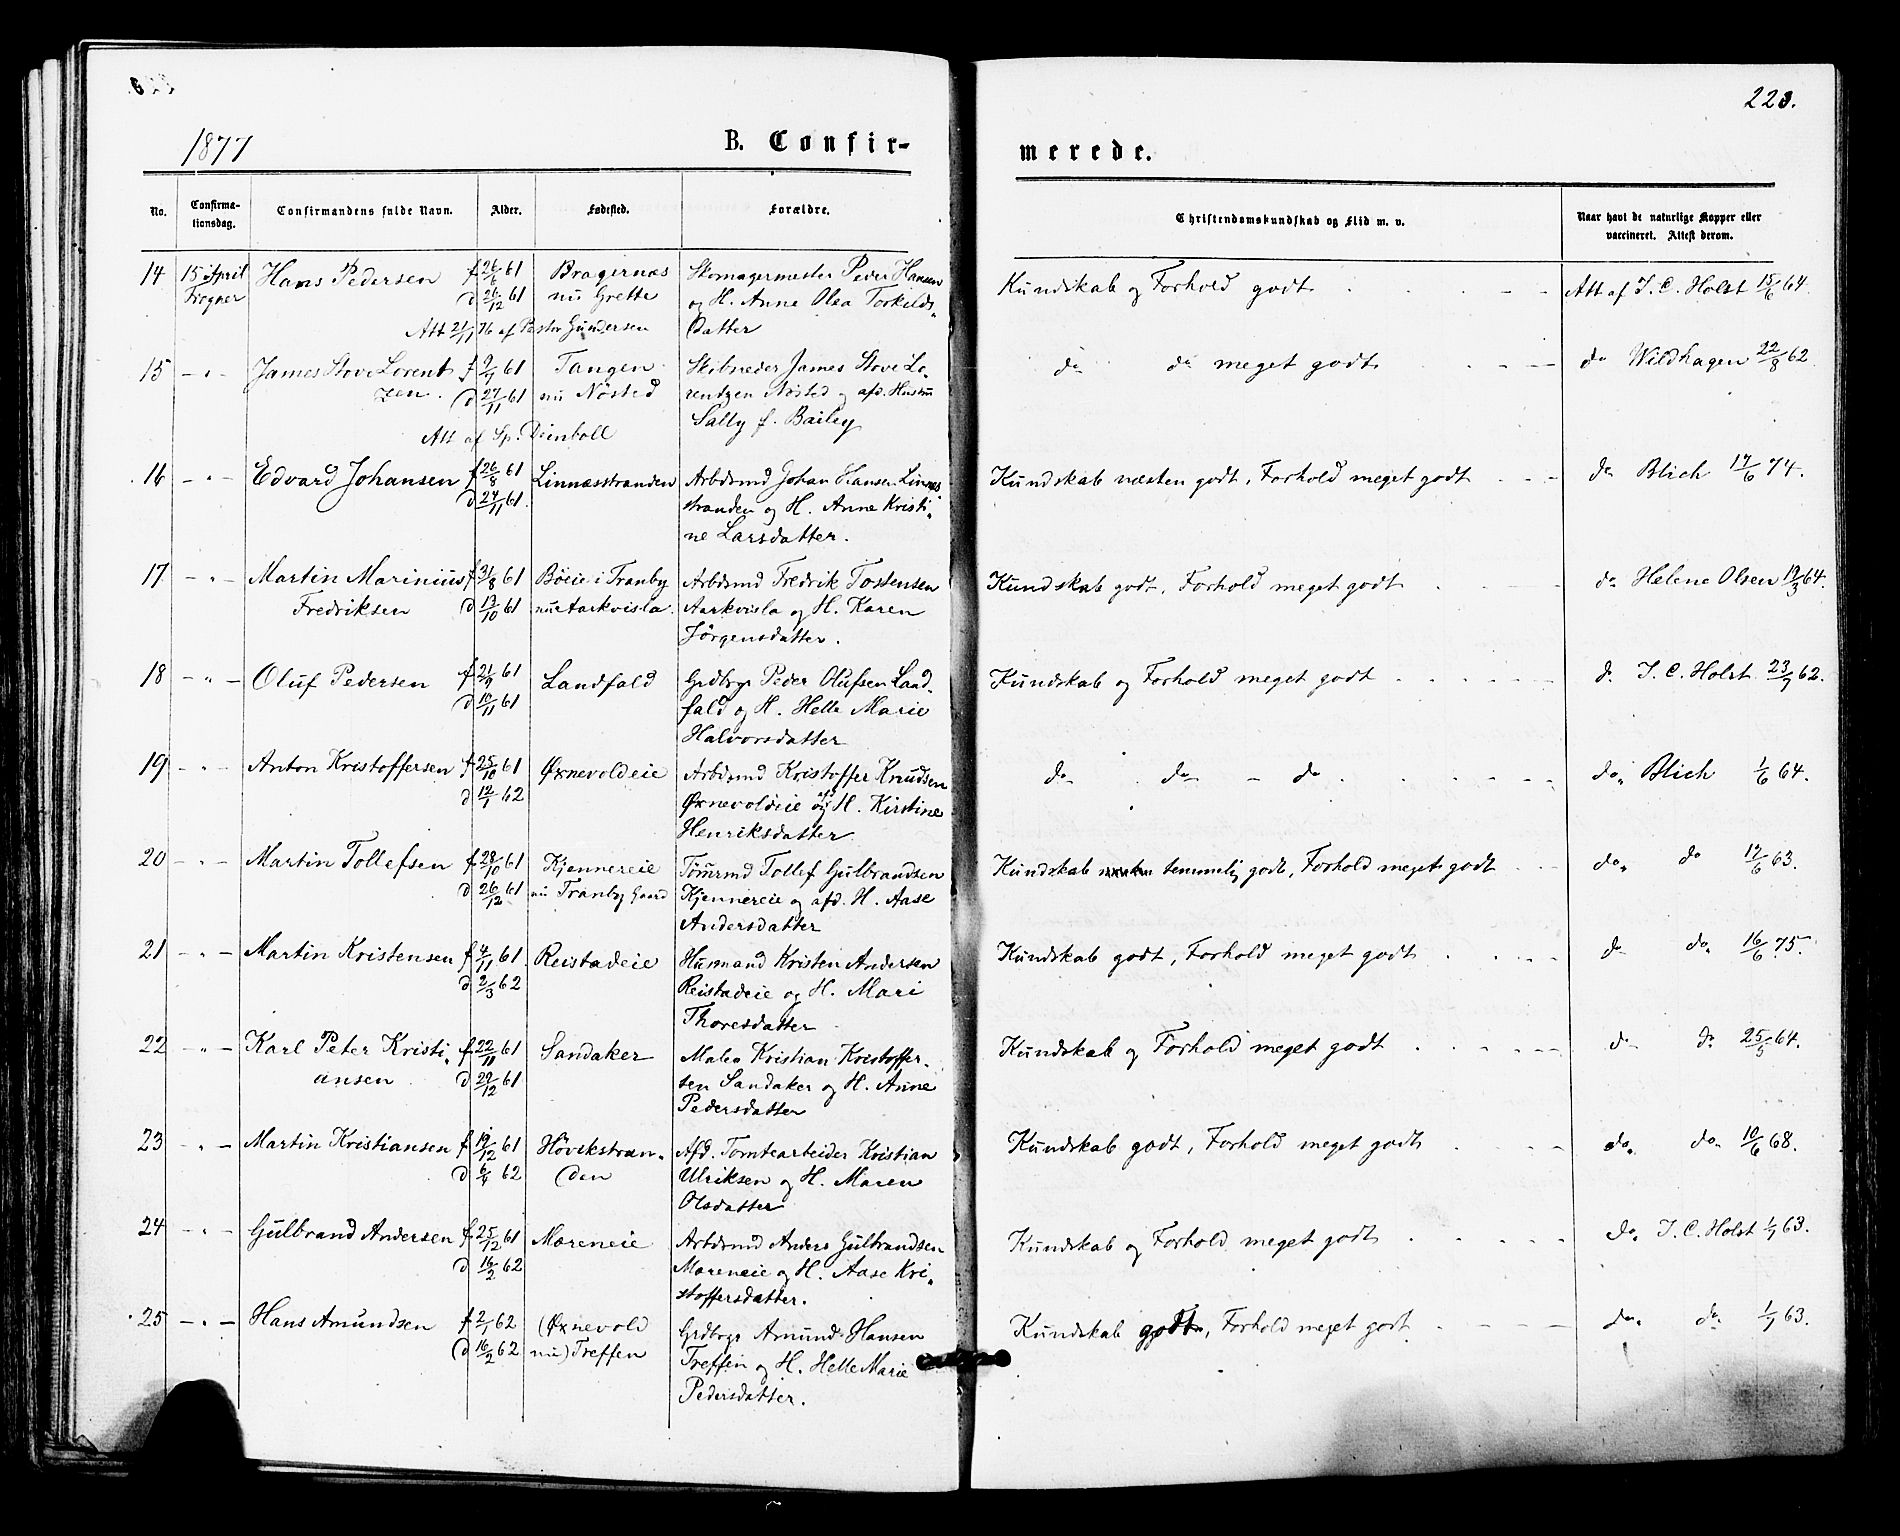 223.
1877
B. Confir-
merede.
No.
Confirma-
tionsdag.
Confirmandens fulde Navn.
Alder.
Fødested.
Forældre.
Christendomskundskab og Flid m. v.
Naar havt de naturlige Kopper eller
vaccineret. Attest derom.
14 15 April Hans Pedersen f 26/6 61 Bragernæs Skomagermester Peder Hansen Kundskab og Forhold godt Att af J. C. Holst 15/6 64.
Frogner d 26/12 61 nu Grette og H. Anne Olea Torkelds-
Att 21/11 76 af Pastor Gundersen datter
15 - " - James Stove Lorent f 9/1 61 Tangen Skibsreder James Stove Lo- do do meget godt do Wildhagen 22/8 62
zen. d 27/11 61 nu Nösted rentzen Nösted og afd. Hustru
Att af Sp. Deinboll Sally f. Bailey
16 - " - Edvard Johansen f 26/8 61 Linnæsstranden Arbdsmd Johan Hansen Linnæs Kundskab næsten godt, Forhold meget godt do Blich 17/6 74.
d 24/11 61. stranden og H. Anne Kristi-
ne Larsdatter.
17 - " - Martin Marinius f 31/8 61 Böeie i Tranby Arbdsmd Fredrik Tostensen Kundskab godt, Forhold meget godt do Helene Olsen 19/3 64.
Fredriksen d 13/10 61 nu Aarkvisla. Aarkvisla og H. Karen
Jörgensdatter.
18 - " - Oluf Pedersen f 21/9 61 Landfald Grdbrgr Peder Olufsen Land- Kundskab og Forhold meget godt do J. C. Holst 23/7 62.
d 10/11 61 fald og H. Helle Marie
Halvorsdatter
19 - " - Anton Kristoffersen f 25/10 61 Øxnevoldeie Arbdsmd Kristoffer Knudsen do do - do do Blich 1/6 64.
d 12/1 62 Øxnevoldeie og afd H. Kirstine
Henriksdatter
20 - " - Martin Tollefsen f 28/10 61 Kjennereie Tömrmd Tollef Gulbrandsen Kundskab temmelig godt, Forhold meget godt do do 12/6 63.
d 26/12 61 nu Tranby Gaard Kjennereie og afd. H. Aase
Andersdatter
21 - " - Martin Kristensen f 4/11 61. Reistadeie Husmand Kristen Andersen Kundskab godt, Forhold meget godt do do 16/6 75.
d 2/3 62 Reistadeie og H. Mari
Thoresdatter
22 - " - Karl Peter Kristi- f 22/11 61 Sandaker Maler Kristian Kristoffer- Kundskab og Forhold meget godt do do 25/5 64.
ansen d 29/12 61 sen Sandaker og H. Anne
Pedersdatter
23 - " - Martin Kristiansen f 19/12 61 Hövikstran- Afd. Tomtearbeider Kristian Kundskab godt, Forhold meget godt do do 10/6 68.
d 6/4 62 den Ulriksen og H. Maren
Olsdatter
24 - " - Gulbrand Andersen f 25/12 61 Moreneie Arbdsmd Anders Gulbrandsen Kundskab og Forhold meget godt do J. C. Holst 1/7 63.
d 16/2 62 Moreneie og H. Aase Kri-
stoffersdatter.
25 - " - Hans Amundsen f 2/1 62 (Øxnevold Grdbrgr Amund Hansen Kundskab godt, Forhold meget godt do do 1/7 63.
d 16/2 62 nu) Treffen Treffin og H. Helle Marie
Pedersdatter.